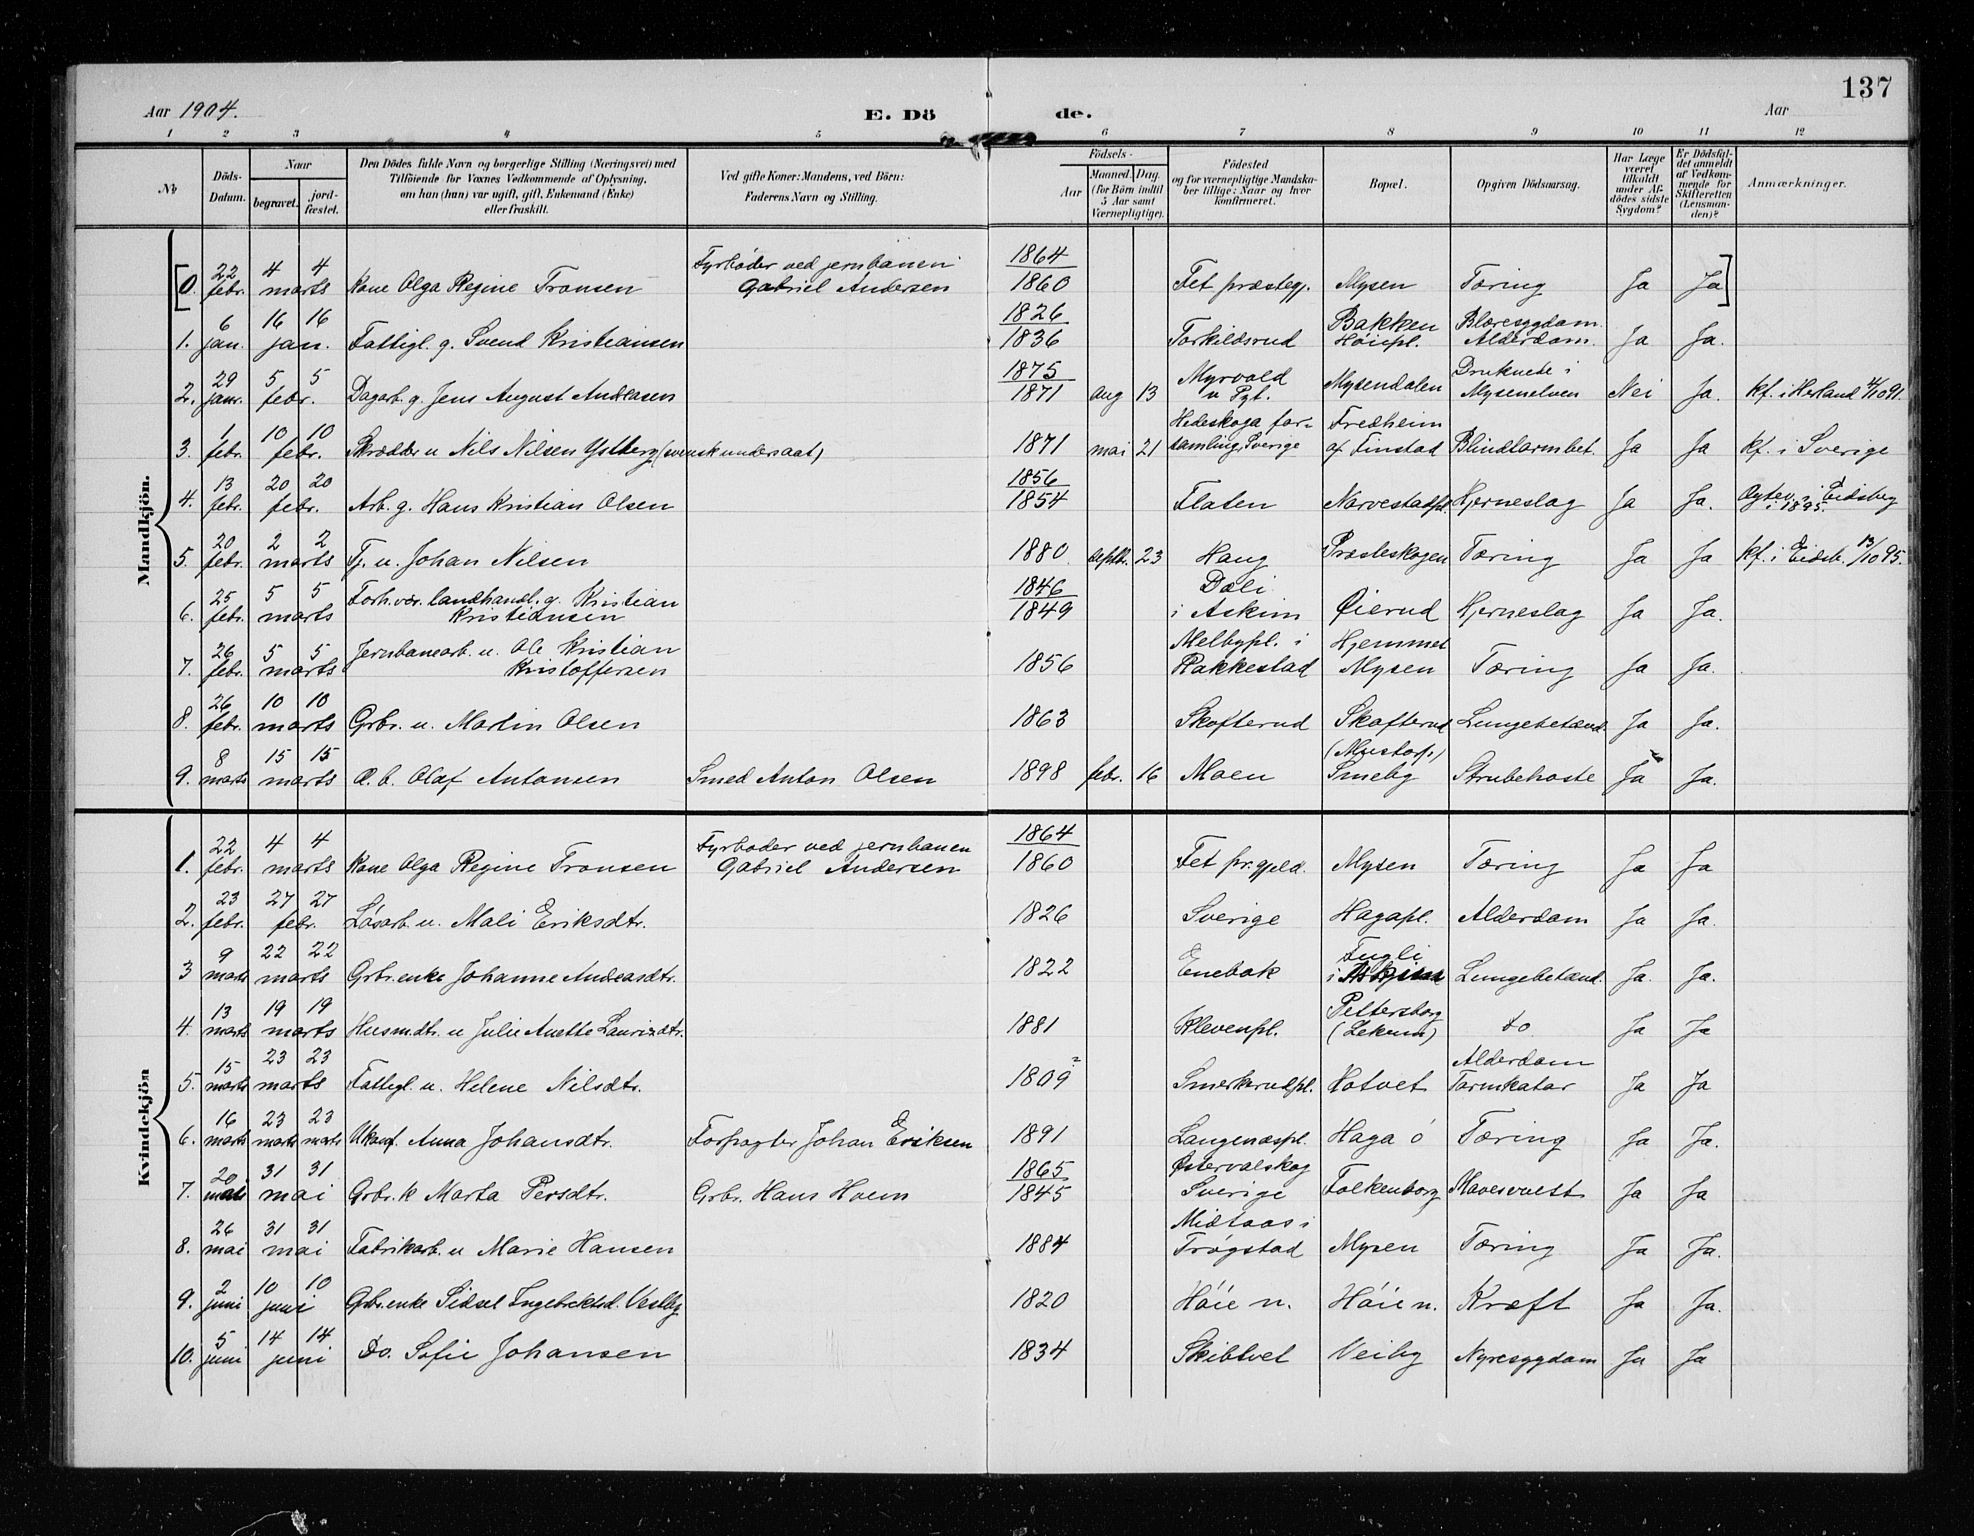 137
Aar 1904. E. Döde. Aar
1 2 3 4 5 6 7 8 9 10 11 12
No
Döds-Datum.
Naar
begravet.
jordfæstet.
Den Dödes fulde Navn og borgerlige Stilling (Næringsvei) med
Tilföiende for Voxnes Vedkommende af Oplysning,
om han (hun) var ugift, gift, Enkemand (Enke)
eller fraskilt.
Ved gifte Koner: Mandens, ved Börn:
Faderens Navn og Stilling.
Födsels-
Aar
Maaned. Dag.
(for Börn indtil
5 Aar samt
Værnepligtige).
Födested
og for værnepligtige Mandskaber tillige: Naar og hvor
konfirmeret.
Bopæl.
Opgiven Dödsaarsag.
Har Læge været tilkaldt under Afdödes sidste Sygdom?
Er Dödsfaldet anmeldt af Vedkommende for Skifteretten (Lensmanden)?
Anmærkninger.
Mandkjön.
[0. 22 febr. 4 4 marts Kone Olga Regine Fransen Fyrbøder ved jernbanen Gabriel Andersen 1864 1860 Fet præstegj. Mysen Tæring Ja Ja]
1. 6 jan. 16 16 jan. Fattigl. g. Svend Kristiansen 1826 1836 Torkildsrud Bakken Høiepl. Blæresygdom. Alderdom. Ja Ja.
2. 29 janr. 5 5 febr. Dagarb. g. Jens August Andreasen 1875 1871 aug 13 Myrvold u Pyt. Mysendalen Druknede i Mysenelven Nei Ja. kf. i Herland 4/10 91.
3. 1 febr. 10 10 febr. Skrædder u Nils Nilsen Ystberg (svensk undersaat) 1871 mai 21 Hedeskoga forsamling, Sverige Fredheim af Finstad Blindtarmbet. Ja Ja kf. i Sverige
4. 13 febr. 20 20 febr. Arb. g. Hans Kristian Olsen 1856 1854 Flaten Narvestadpl. Hjerneslag Ja Ja. Ægtev. i Eidsberg i 1895.
5. 20 febr. 2 2 marts Tj. u. Johan Nilsen 1880 septbr. 23 Haug Præsteskogen Tæring Ja Ja kf. i Eidsb. 13/10 95.
6. 25 febr. 5 5 marts Forh.vær. landhandl. g. Kristian Kristiansen 1846 1849 Dæli i Askim Øierud Hjerneslag Ja Ja.
7. 26 febr. 5 5 marts Jernbanearb. u. Ole Kristian Kristoffersen 1856 Melbypl. i Rakkestad Hjemmet Mysen Tæring Ja Ja.
8. 26 febr. 10 10 marts Grbr. u. Martin Olsen 1863 Skofterud Skofterud Lungebetænd. Ja Ja.
9. 8 marts 15 15 marts Æ. b. Olaf Antonsen Smed Anton Olsen 1898 febr. 16 Moen (Mustorp) Smeby Strubehoste Ja Ja.
Kvindekjön
1. 22 febr. 4 4 marts Kone Olga Regine Fransen Fyrbøder ved jernbanen Gabriel Andersen 1864 1860 Fet pr.gjeld. Mysen Tæring Ja Ja
2. 23 febr. 27 27 febr. Løsarb. u. Mali Eriksdtr. 1826 Sverige Hagapl. Alderdom Ja Ja.
3 9 marts 22 22 marts Grbr.enke Johanne Andreasdtr. 1822 Enebak Fugli i Askim Lungebetænd. Ja. Ja.
4. 13 marts 19 19 marts Husmdtr. u Julie Anette Lauritzdtr. 1881 Klevenpl. Pettersborg (Lekum) do Ja Ja
5. 15 marts 23 23 marts Fattigl. u. Helene Nilsdtr. 1809? Smerkerudpl. Hotvet Alderdom Tarmkatar Ja Ja
6. 16 marts 23 marts 23 marts Ukonf. Anna Johansdtr. Forpagter Johan Eriksen 1891 Langenæspl. Haga ø Tæring Ja Ja.
7. 20 mai 31 31 mai Grbr. k Marta Persdtr. Grbr. Hans Hoem 1865 1845 Østervalskog Sverige Folkenborg Mavesvulst Ja Ja
8. 26 mai 31 31 mai Fabrikarb. u Marie Hansen 1884 Midtaas i Trøgstad Mysen Tæring Ja Ja.
9. 2 juni 10 10 juni Grbr.enke Sidsel Ingebretsd. Vestby 1820 Høie n. Høie n. Kræft Ja Ja.
10. 5 juni 14 14 juni Do. Sofie Johansen 1834 Skibtvet Veiby Nyresygdom Ja Ja